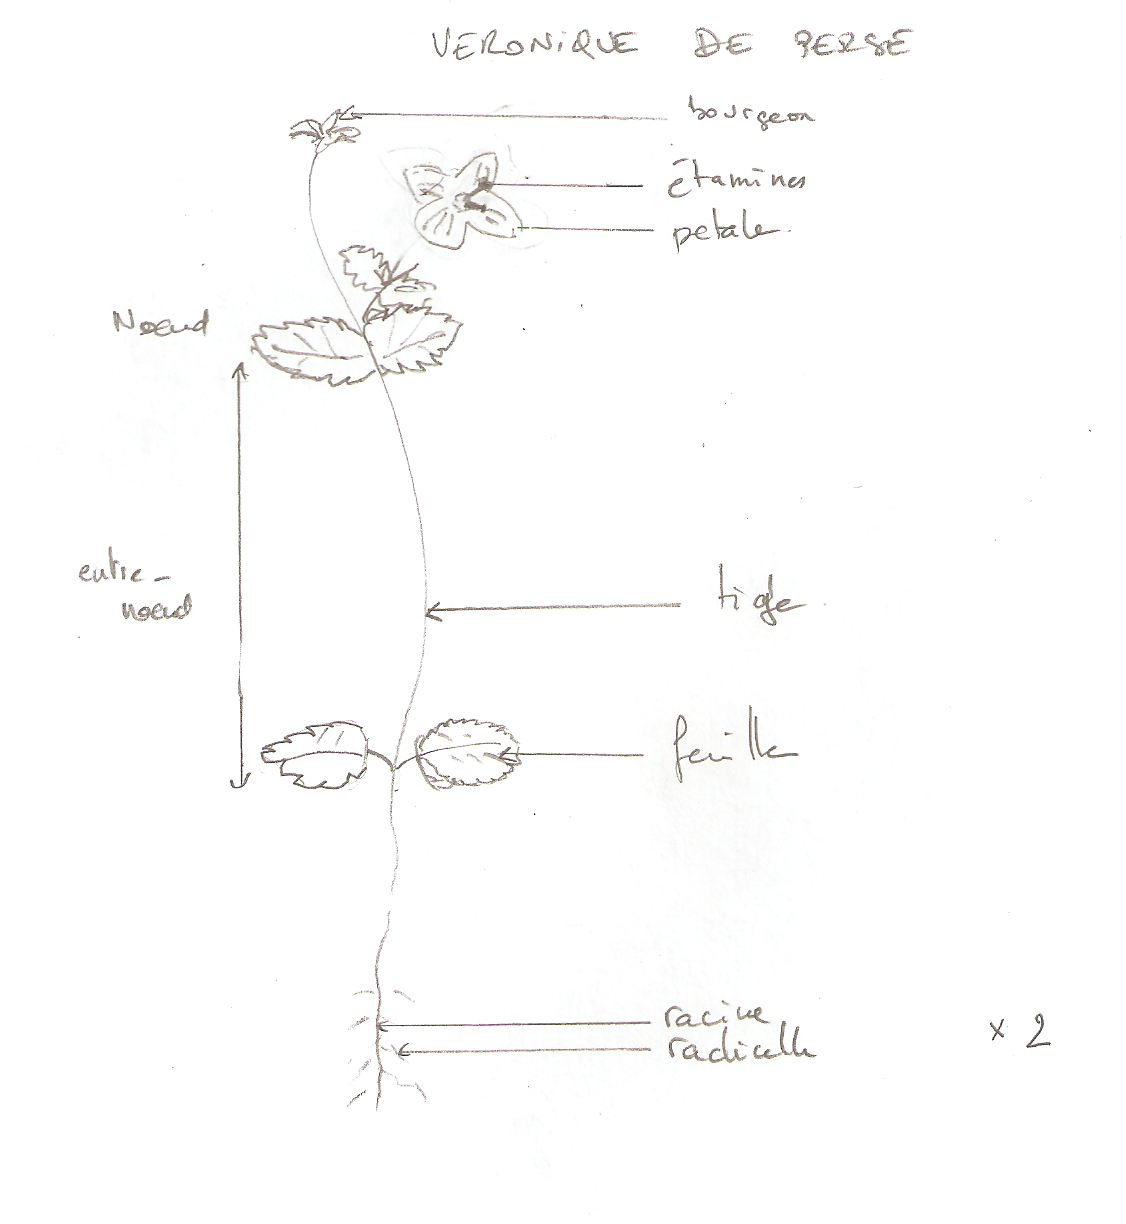 VERONIQUE DE PERSE
bourgeon
étamines
petale.
Noeud
entre-
noeud
tige
feuille
racine
radicelle
x 2